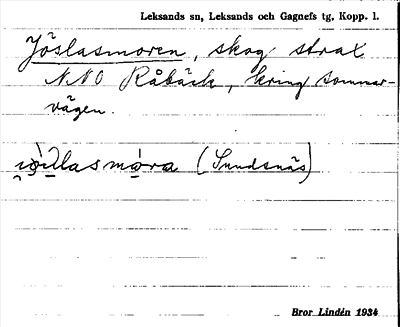 Leksands sn, Leksands och Gagnefs tg, Kopp. l.
Jöslasmoren, skog strax
NNO Råbäck, kring sommar-
vägen.
(Sundsnäs)
Bror Lindén 1934